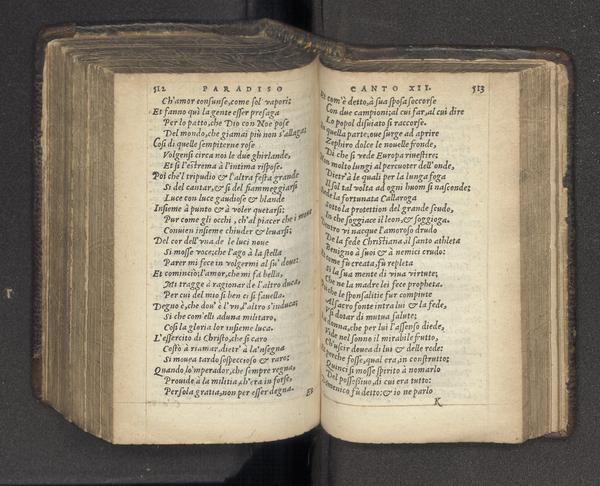 512 PARADISO
Ch'amor consunse, come sol vapori;
Et fanno quì la gente esser presaga
Per lo patto, che Dio con Noe pose
Del mondo, che giamai più non s'allaga;
Cosi di quelle sempiterne rose
Volgensi circa noi le due ghirlande,
Et si l'estrema à l'intima rispose.
Poi che'l tripudio & l'altra festa grande
Si del cantar, & si del fiammeggiarsi
Luce con luce gaudiose & blande
Insieme à punto & à voler quetarsi;
Pur come gli occhi, ch'al piacer che i moue
Conuien insieme chiuder & leuarsi;
Del cor dell'vna de le luci noue
Si mosse voce; che l'ago à la stella
Parer mi fece in volgermi al su' doue:
Et cominciò; l'amor, che mi fa bella,
Mi tragge à ragionar de l'altro duca,
Per cui del mio si ben ci si fauella.
Degno è, che dou' è l'vn, l'altro s'induca;
Si che com'elli aduna militaro,
Cosi la gloria lor insieme luca.
L'essercito di Christo, che si caro
Costò à riamar, dietr' à la'nsegna
Si mouea tardo sospeccioso & raro;
Quando lo'mperador, che sempre regna,
Prouide à la militia, ch'era in forse,
Per sola gratia, non per esser degna.
Et
CANTO XII. 513
Et com'è detto, à sua sposa soccorse
Con due campioni; al cui far, al cui dire
Lo popol disuiato si raccorse.
In quella parte, oue surge ad aprire
Zephiro dolce le nouelle fronde,
Di che si vede Europa riuestire;
Non molto lungi al percuoter dell'onde,
Dietr'à le quali per la lunga foga
Il sol tal volta ad ogni huom si nasconde;
Siede la fortunata Callaroga
Sotto la protettion del grande scudo,
In che soggiace il leon, & soggioga.
Dentro vi nacque l'amoroso drudo
De la fede Christiana, il santo athleta
Benigno à suoi & à nemici crudo:
Et come fù creata, fù repleta
Si la sua mente di viua virtute;
Che ne la madre lei fece propheta.
Poi che le sponsalitie fur compiute
Al sacro fonte intra lui & la fede,
V'si dotar di mutua salute;
La donna, che per lui l'assenso diede,
Vide nel sonno il mirabile frutto,
Ch'uscir douea di lui & delle rede:
Et perche fosse, qual era, in construtto;
Quinci si mosse spirito à nomarlo
Del possessiuo, di cui era tutto:
Domenico fù detto: & io ne parlo
K